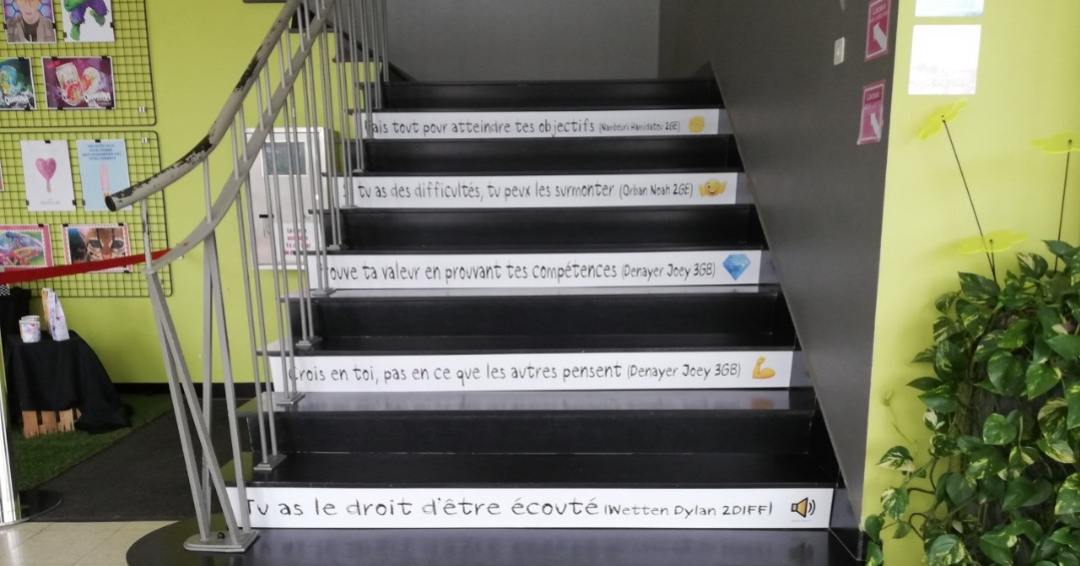 ais tout pour atteindre tes objectifs (Nambouri Hamidatou 2GE)
tu as des difficultés, tu peux les surmonter (Orban Noah 2GE)
rouve ta valeur en prouvant tes compétences (Denayer Joey 3GB)
Crois en toi, pas en ce que les autres pensent (Denayer Joey 3GB)
Tu as le droit d'être écouté (Wetten Dylan 2DIFF)